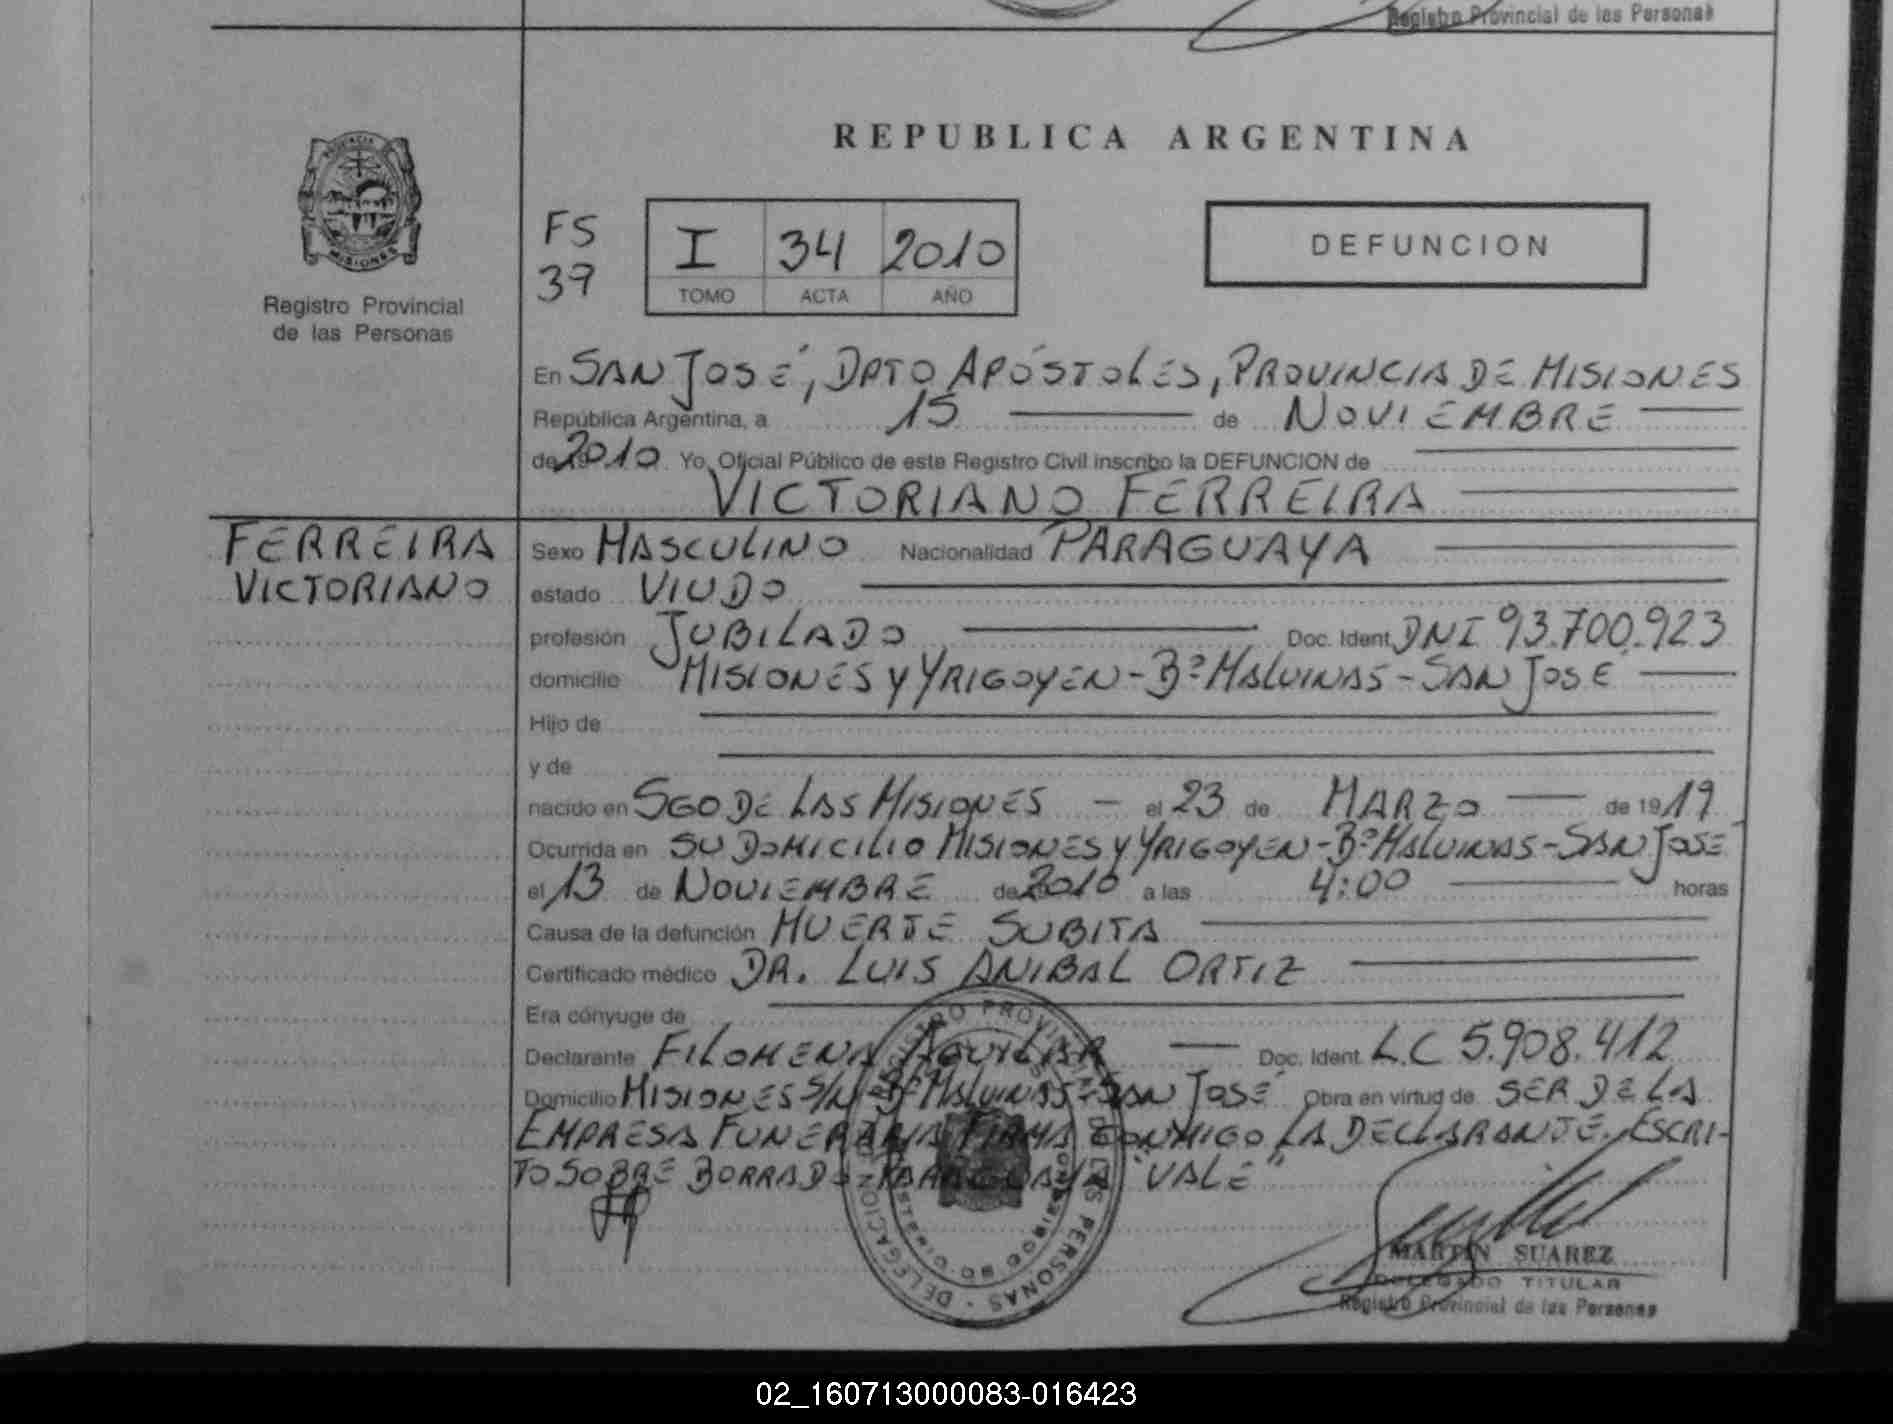 Registro Provincial de las Personas
REPUBLICA ARGENTINA
MISIONES
Registro Provincial
de las Personas
FS
39
I 34 2010
TOMO ACTA AÑO
DEFUNCION
En SAN JOSÉ, DPTO APÓSTOLES, PROVINCIA DE MISIONES
República Argentina, a 15 de NOVIEMBRE
de 2010 Yo, Oficial Público de este Registro Civil inscribo la DEFUNCION de
VICTORIANO FERREIRA
FERREIRA
VICTORIANO
Sexo MASCULINO Nacionalidad PARAGUAYA
estado VIUDO
profesión JUBILADO Doc. Ident. DNI 93.700.923
domicilio MISIONES Y YRIGOYEN - Bº MALVINAS - SAN JOSE
Hijo de
y de
nacido en SGO DE LAS MISIONES - el 23 de MARZO de 19 19
Ocurrida en SU DOMICILIO MISIONES Y YRIGOYEN - Bº MALVINAS - SAN JOSÉ
el 13 de NOVIEMBRE de 2010 a las 4:00 horas
Causa de la defunción MUERTE SUBITA
Certificado médico DR. LUIS ANIBAL ORTIZ
Era cónyuge de
Declarante FILOMENA AGUILAR Doc. Ident. L.C 5.908.412
Domicilio MISIONES S/N Bº MALVINAS - SAN JOSÉ Obra en virtud de SER DE LA
EMPRESA FUNERARIA FIRMA CONMIGO LA DECLARANTE. ESCRI-
TO SOBRE BORRADO: PARAGUAYA "VALE"
REGISTRO PROVINCIAL DE LAS PERSONAS - DELEGACION
MARTIN SUAREZ
DELEGADO TITULAR
Registro Provincial de las Personas
02_160713000083-016423